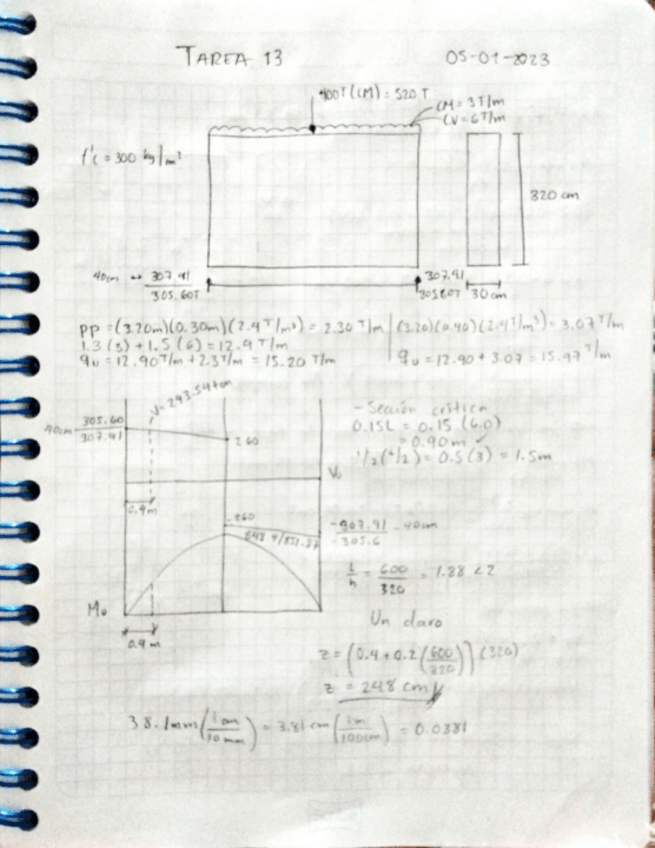 TAREA 13
05-01-2023
400T (CM) = 520T
CM = 3 T/m
CV = 6 T/m
f'c = 300 kg/cm²
320 cm
40cm → 307.91
305.60T
307.91
305.60T
30 cm
PP = (3.20m)(0.30m)(2.4 T/m³) = 2.30 T/m | (3.20)(0.40)(2.4 T/m³) = 3.07 T/m
1.3 (3) + 1.5 (6) = 12.9 T/m
qu = 12.90 T/m + 2.3 T/m = 15.20 T/m
qu = 12.90 + 3.07 = 15.97 T/m
V = 293.54 ton
40cm 305.60
307.91
260
Vu
0.9m
- Sección crítica
0.15L = 0.15 (6.0)
= 0.90 m ✓
1/2 (6/2) = 0.5 (3) = 1.5 m
-260
848.4/851.87
-307.91 - 40cm
-305.6
Mu
0.9 m
L/h = 600/320 = 1.88 < 2
Un claro
z = (0.4 + 0.2 (600/320)) (320)
z = 248 cm
38.1mm (1cm/10mm) = 3.81 cm (1m/100cm) = 0.0381